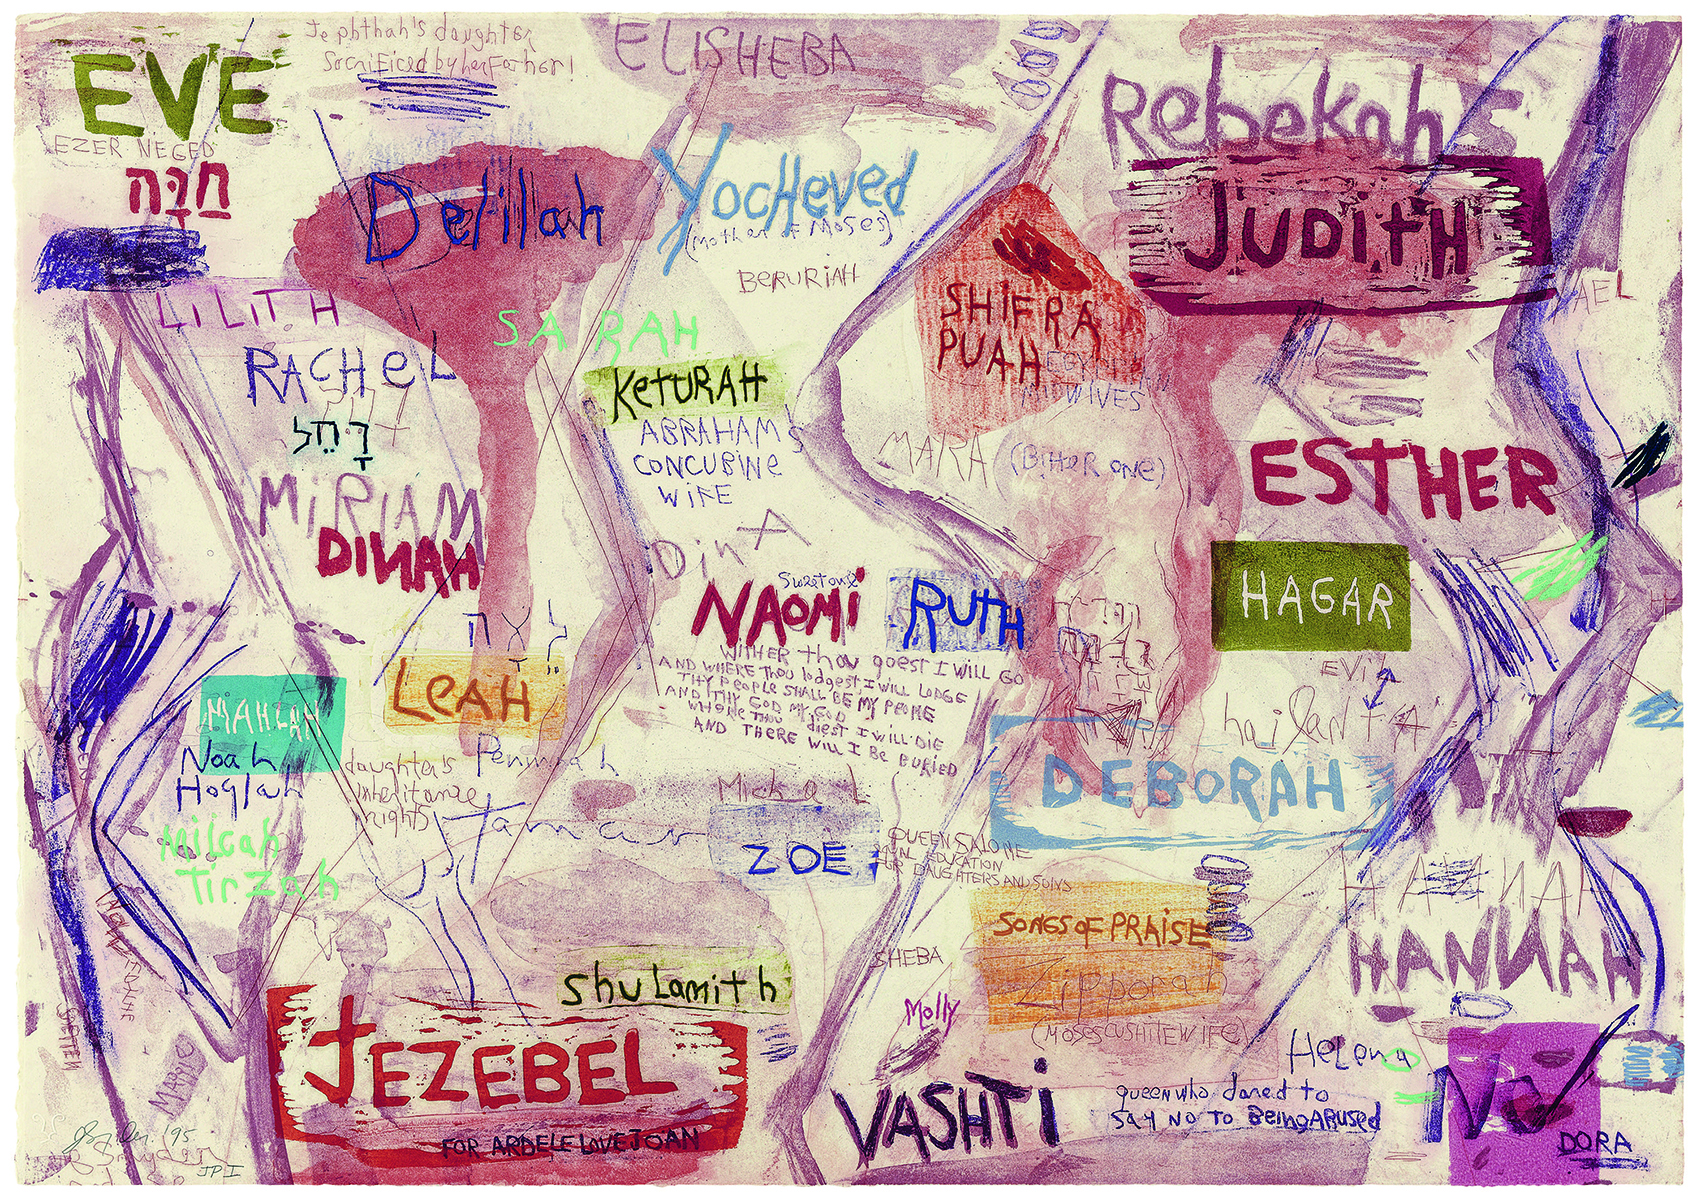 EVE
Jephthah's daughter
Sacrificed by her Father!
ELISHEBA
Rebekah
EZER NEGED
חַוָּה
Delilah
Yocheved
(Mother of Moses)
BERURIAH
JUDITH
LILITH
SARAH
SHIFRA
PUAH
EGYPTIAN
MIDWIVES
RACHEL
רָחֵל
KETURAH
ABRAHAM'S
CONCUBINE
WIFE
MARA (Bitter one)
ESTHER
MIRIAM
DINAH
DinA
Sweet one
NAOMI
RUTH
HAGAR
WITHER thou goest I WILL GO
AND WHERE THOU lodgest I WILL LODGE
THY PEOPLE SHALL BE MY PEOPLE
AND THY GOD MY GOD
WHERE THOU diest I WILL DIE
AND THERE WILL I BE BURIED
לֵאָה
LEAH
EViL
MAHLAH
Noah
Hoglah
Milcah
Tirzah
daughter's
inheritance
rights
Peninnah
Tamar
Michal
ZOE
DEBORAH
QUEEN SALOME
EDUCATION
FOR DAUGHTERS AND SONS
HANNAH
HANNAH
SONGS OF PRAISE
Zipporah
(MOSES CUSHITE WIFE)
SHEBA
Molly
Shulamith
JEZEBEL
FOR ARDELE LOVE JOAN
VASHTI
queen who dared to
SAY NO TO BeingABUSED
Helena
DORA
MARIC
'95
JP I